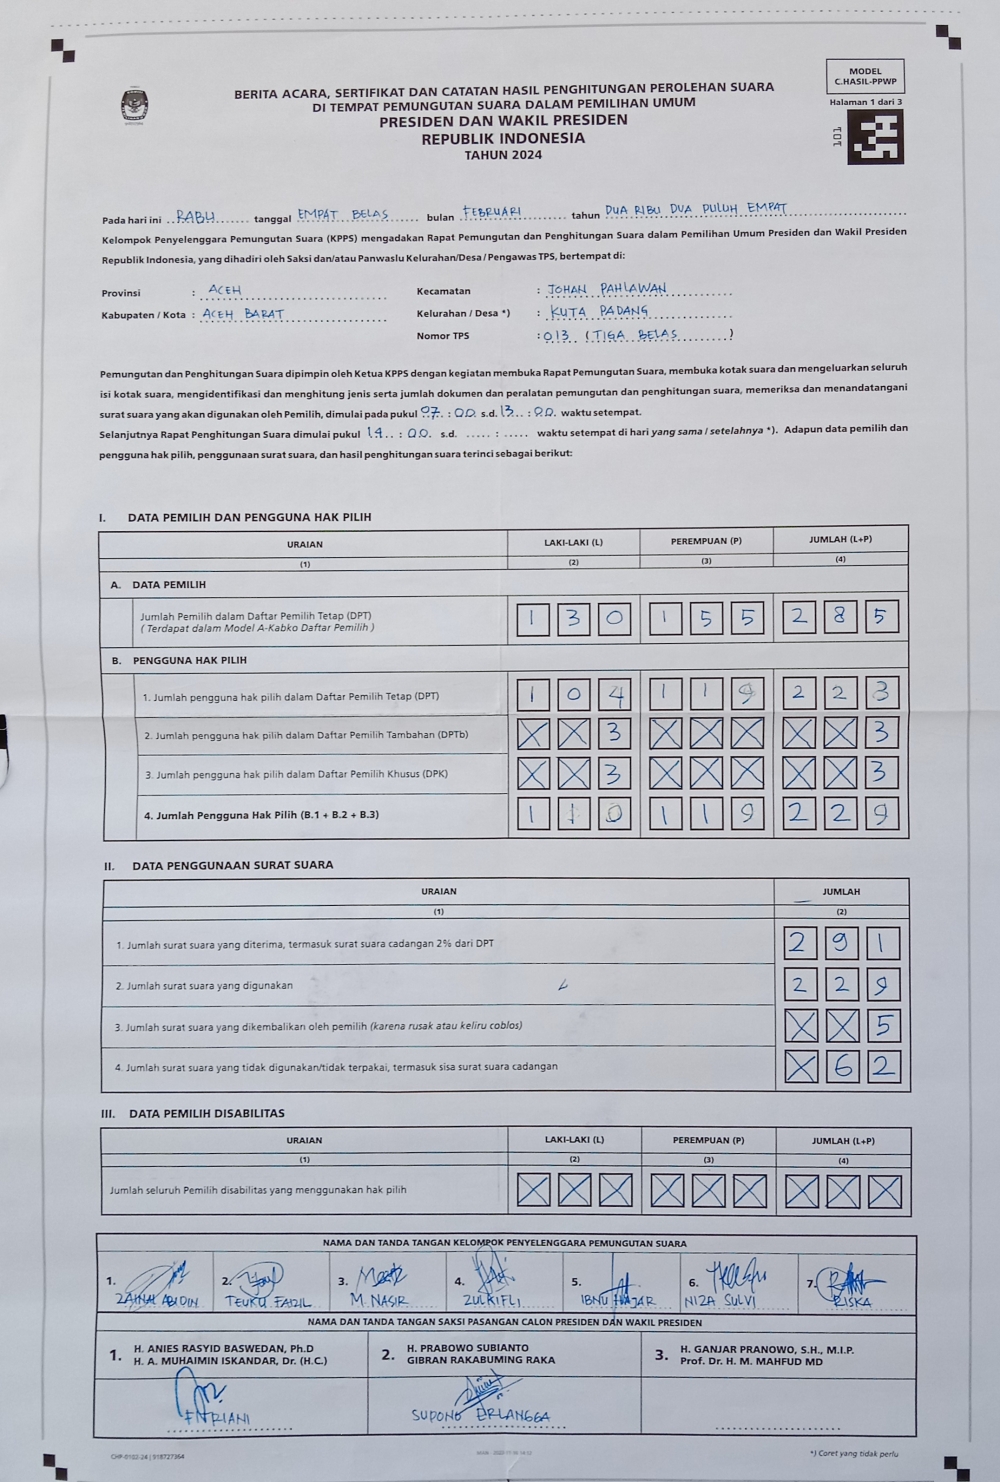 MODEL
C.HASIL-PPWP
Halaman 1 dari 3
101
BERITA ACARA, SERTIFIKAT DAN CATATAN HASIL PENGHITUNGAN PEROLEHAN SUARA
DI TEMPAT PEMUNGUTAN SUARA DALAM PEMILIHAN UMUM
PRESIDEN DAN WAKIL PRESIDEN
REPUBLIK INDONESIA
TAHUN 2024
Pada hari ini RABU tanggal EMPAT BELAS bulan FEBRUARI tahun DUA RIBU DUA PULUH EMPAT
Kelompok Penyelenggara Pemungutan Suara (KPPS) mengadakan Rapat Pemungutan dan Penghitungan Suara dalam Pemilihan Umum Presiden dan Wakil Presiden
Republik Indonesia, yang dihadiri oleh Saksi dan/atau Panwaslu Kelurahan/Desa / Pengawas TPS, bertempat di:
Provinsi : ACEH Kecamatan : JOHAN PAHLAWAN
Kabupaten / Kota : ACEH BARAT Kelurahan / Desa *) : KUTA PADANG
Nomor TPS : 013 (TIGA BELAS)
Pemungutan dan Penghitungan Suara dipimpin oleh Ketua KPPS dengan kegiatan membuka Rapat Pemungutan Suara, membuka kotak suara dan mengeluarkan seluruh
isi kotak suara, mengidentifikasi dan menghitung jenis serta jumlah dokumen dan peralatan pemungutan dan penghitungan suara, memeriksa dan menandatangani
surat suara yang akan digunakan oleh Pemilih, dimulai pada pukul 07 : 00 s.d. 13 : 00 waktu setempat.
Selanjutnya Rapat Penghitungan Suara dimulai pukul 14 : 00 s.d. ..... : ..... waktu setempat di hari yang sama / setelahnya *). Adapun data pemilih dan
pengguna hak pilih, penggunaan surat suara, dan hasil penghitungan suara terinci sebagai berikut:
I. DATA PEMILIH DAN PENGGUNA HAK PILIH
URAIAN LAKI-LAKI (L) PEREMPUAN (P) JUMLAH (L+P)
(1) (2) (3) (4)
A. DATA PEMILIH
Jumlah Pemilih dalam Daftar Pemilih Tetap (DPT) 1 3 0 1 5 5 2 8 5
( Terdapat dalam Model A-Kabko Daftar Pemilih )
B. PENGGUNA HAK PILIH
1. Jumlah pengguna hak pilih dalam Daftar Pemilih Tetap (DPT) 1 0 4 1 1 9 2 2 3
2. Jumlah pengguna hak pilih dalam Daftar Pemilih Tambahan (DPTb) X X 3 X X X X X 3
3. Jumlah pengguna hak pilih dalam Daftar Pemilih Khusus (DPK) X X 3 X X X X X 3
4. Jumlah Pengguna Hak Pilih (B.1 + B.2 + B.3) 1 1 0 1 1 9 2 2 9
II. DATA PENGGUNAAN SURAT SUARA
URAIAN JUMLAH
(1) (2)
1. Jumlah surat suara yang diterima, termasuk surat suara cadangan 2% dari DPT 2 9 1
2. Jumlah surat suara yang digunakan 2 2 9
3. Jumlah surat suara yang dikembalikan oleh pemilih (karena rusak atau keliru coblos) X X 5
4. Jumlah surat suara yang tidak digunakan/tidak terpakai, termasuk sisa surat suara cadangan X 6 2
III. DATA PEMILIH DISABILITAS
URAIAN LAKI-LAKI (L) PEREMPUAN (P) JUMLAH (L+P)
(1) (2) (3) (4)
Jumlah seluruh Pemilih disabilitas yang menggunakan hak pilih X X X X X X X X X
NAMA DAN TANDA TANGAN KELOMPOK PENYELENGGARA PEMUNGUTAN SUARA
1. 2. 3. 4. 5. 6. 7.
ZAINAL ABIDIN TEUKU FAIZIL M. NASIR ZULKIFLI IBNU HAJAR NIZA SULVI RISKA
NAMA DAN TANDA TANGAN SAKSI PASANGAN CALON PRESIDEN DAN WAKIL PRESIDEN
1. H. ANIES RASYID BASWEDAN, Ph.D
H. A. MUHAIMIN ISKANDAR, Dr. (H.C.)
2. H. PRABOWO SUBIANTO
GIBRAN RAKABUMING RAKA
3. H. GANJAR PRANOWO, S.H., M.I.P.
Prof. Dr. H. M. MAHFUD MD
FITRIANI SUPONO ERLANGGA
CHP-0102-24 | 918727364
*) Coret yang tidak perlu